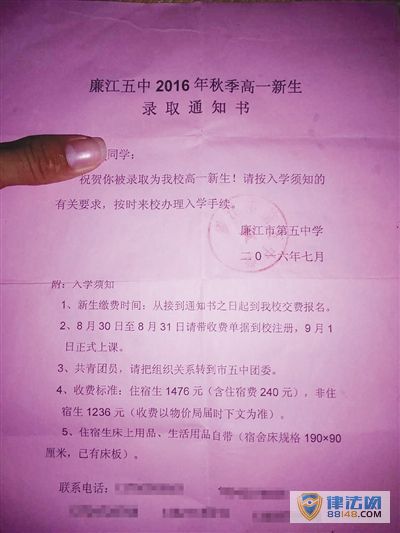 廉江五中 2016 年秋季高一新生
录 取 通 知 书
同学：
祝贺你被录取为我校高一新生！请按入学须知的
有关要求，按时来校办理入学手续。
廉江市第五中学
二０一六年七月
附：入学须知
1、新生缴费时间：从接到通知书之日起到我校交费报名。
2、8 月 30 日至 8 月 31 日请带收费单据到校注册，9 月 1
日正式上课。
3、共青团员，请把组织关系转到市五中团委。
4、收费标准：住宿生 1476 元（含住宿费 240 元），非住
宿生 1236 元（收费以物价局届时下文为准）。
5、住宿生床上用品、生活用品自带（宿舍床规格 190×90
厘米，已有床板）。
联系电话：
律法网
88148.COM